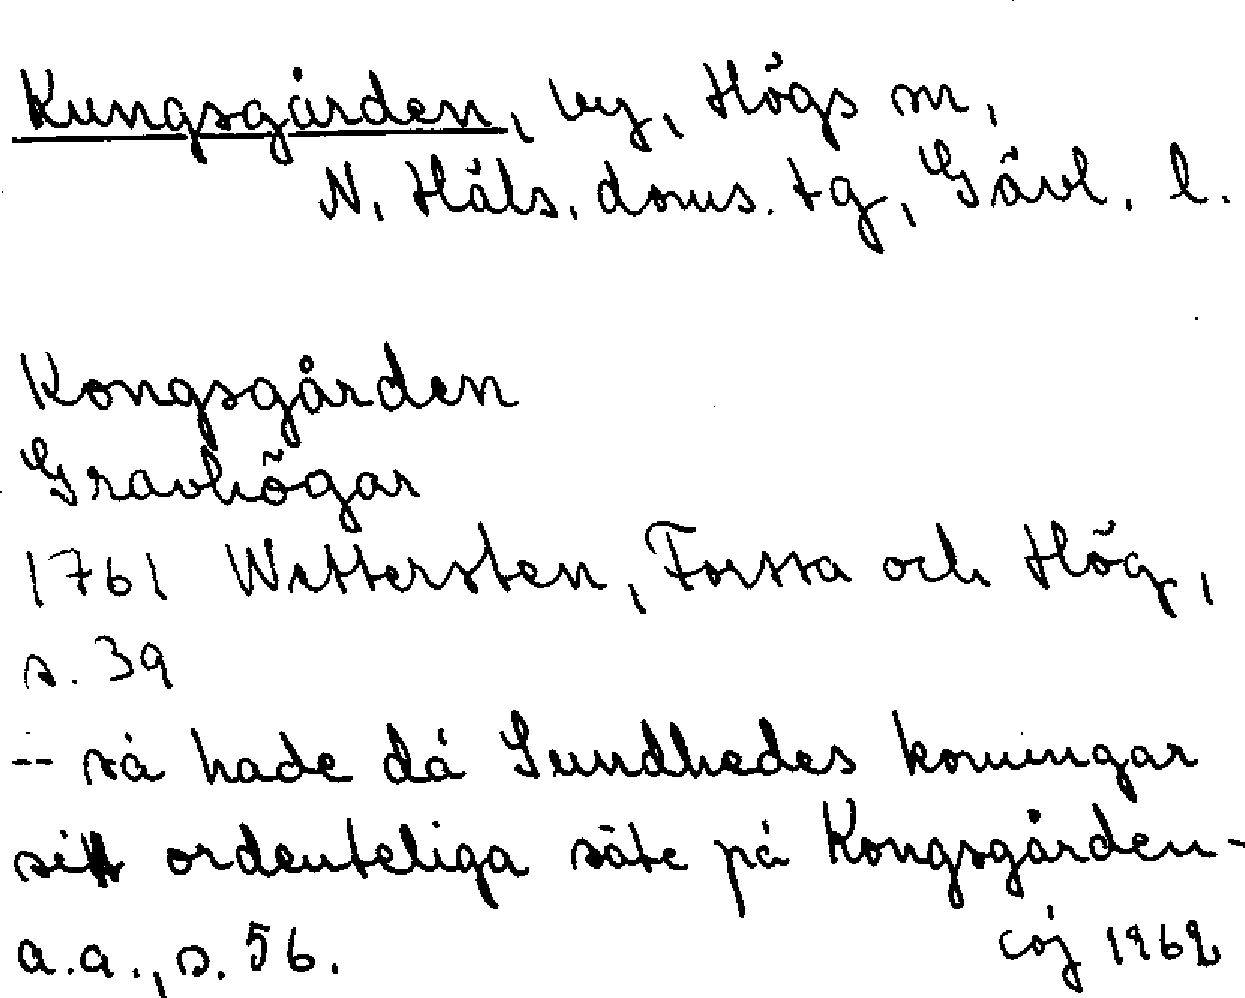 Kungsgården, by, Högs sn,
N. Häls. doms. tg, Gävl. l.
Kongsgården
Gravhögar
1761 Wettersten, Forssa och Hög,
s. 39
-- så hade då Sundhedes konungar
sitt ordenteliga säte på Kongsgården -
a.a., s. 56.
cöj 1962